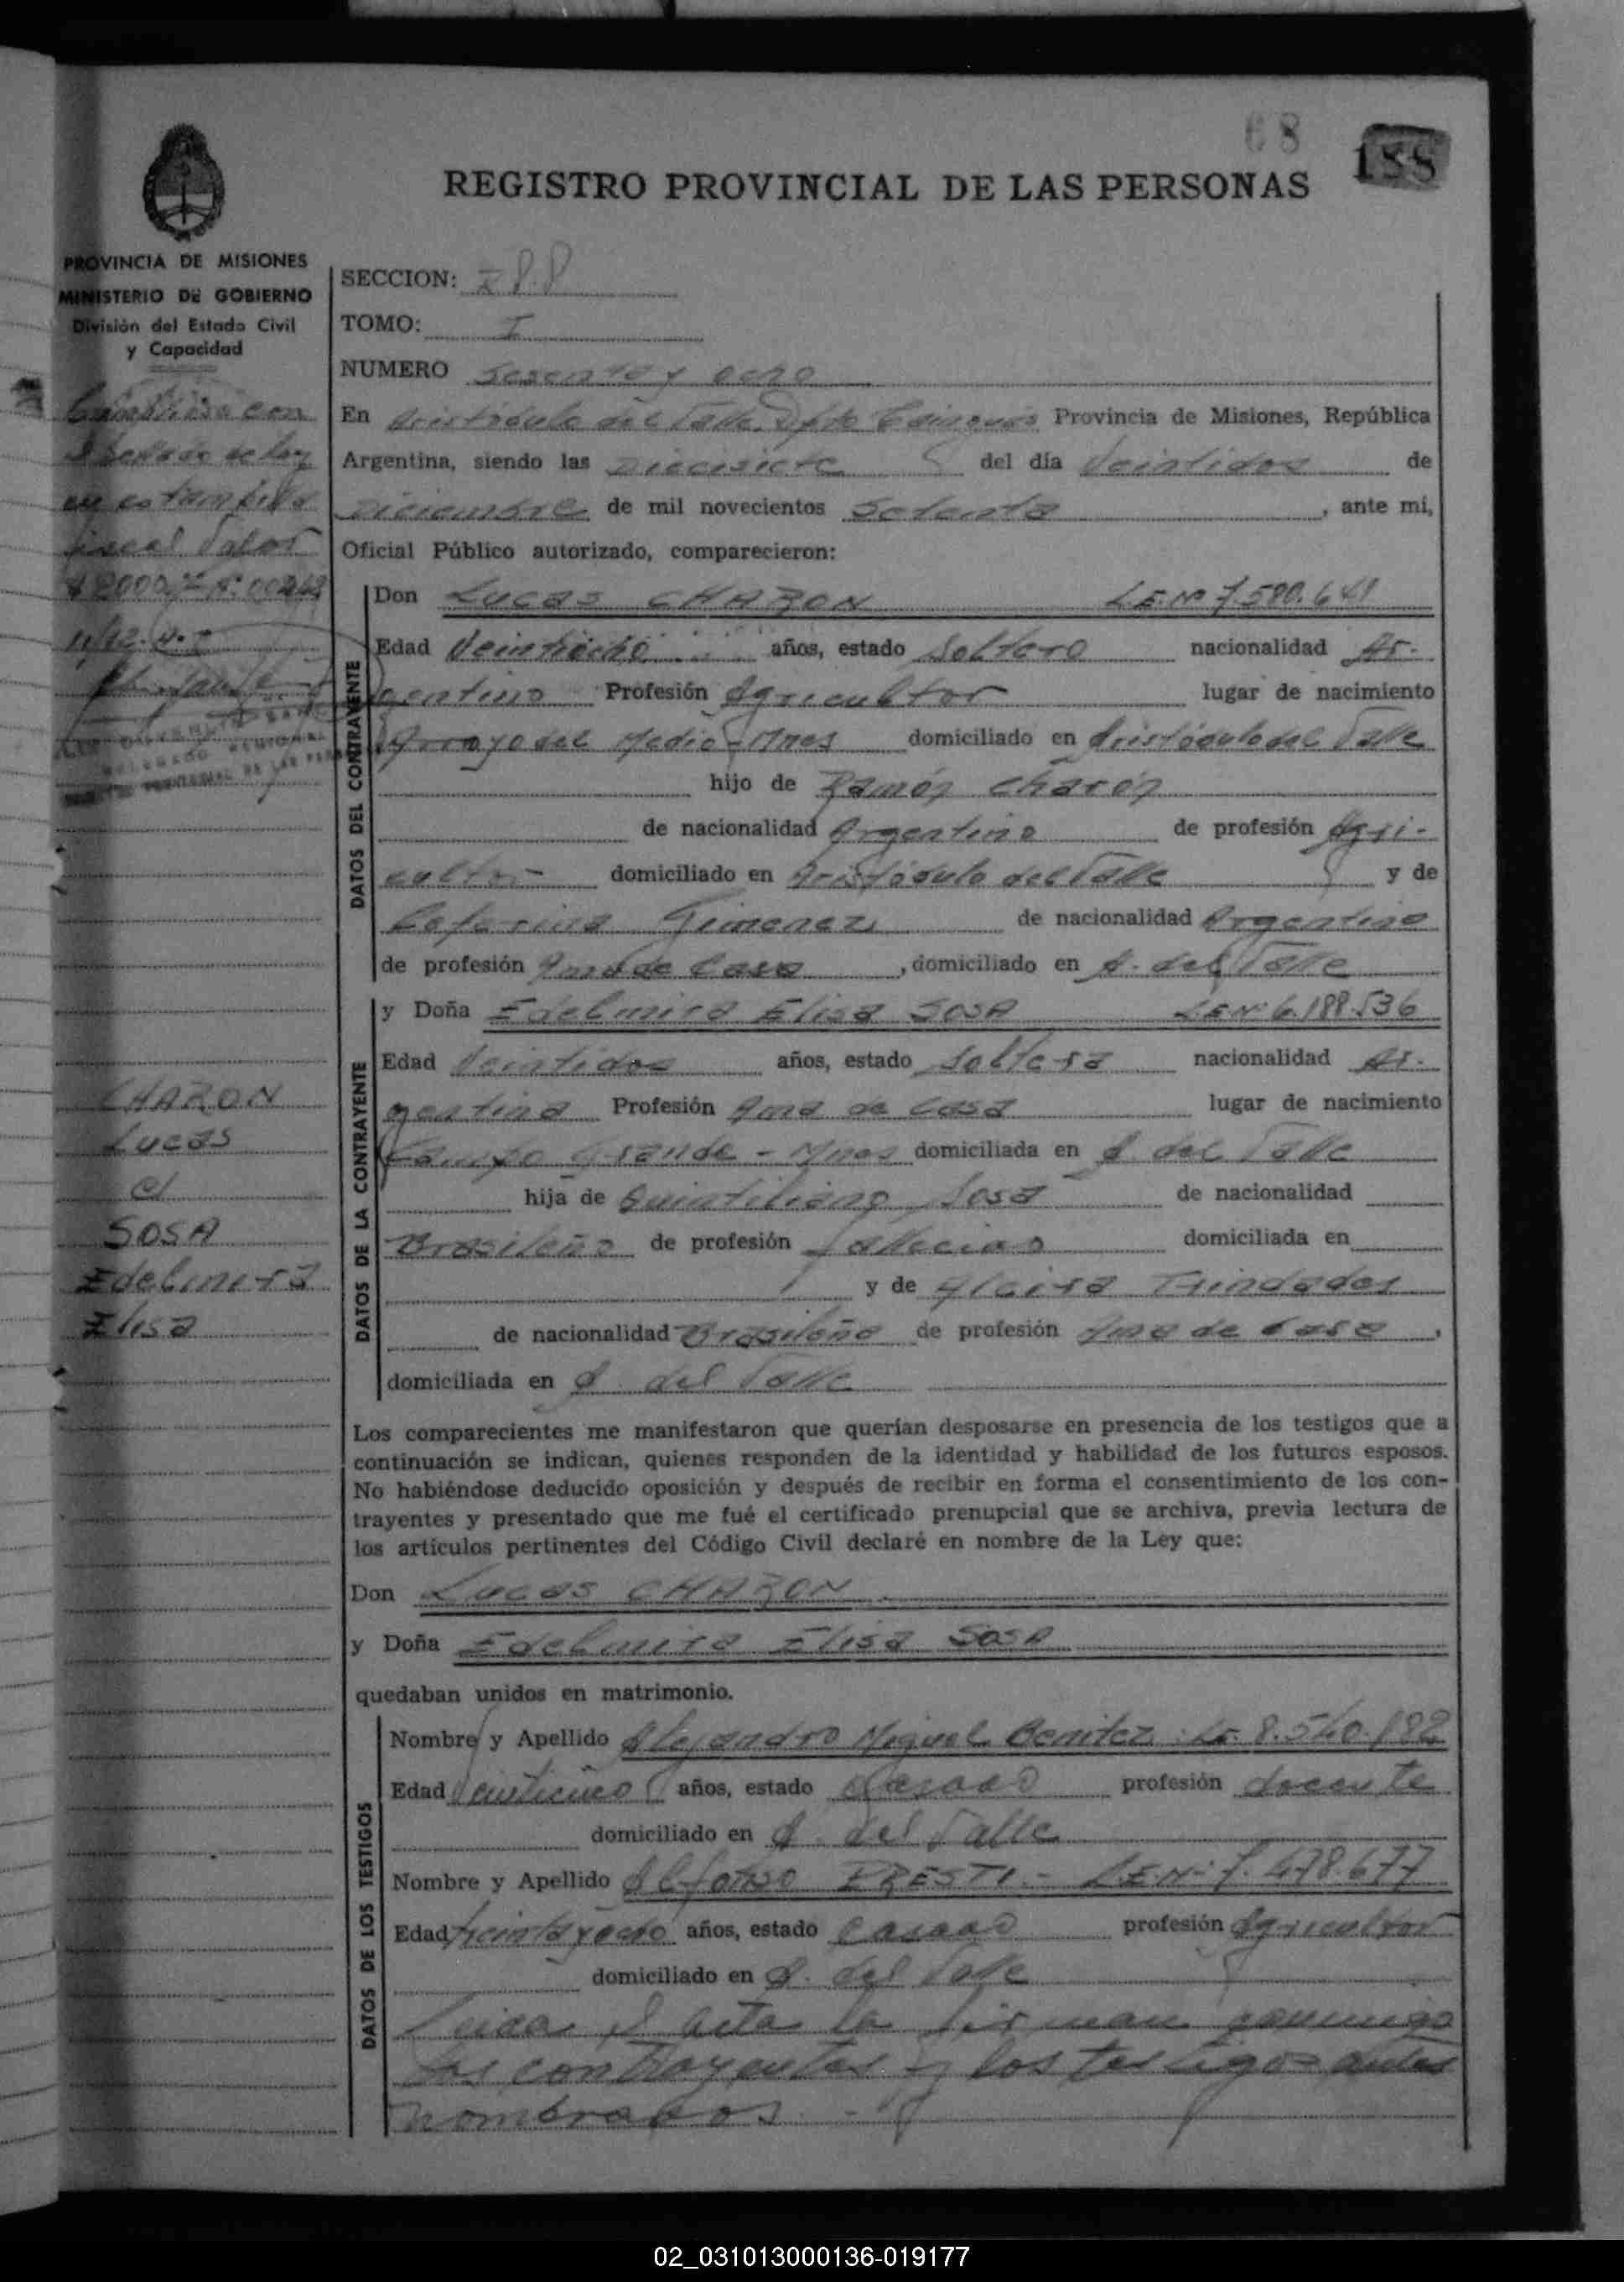 68 188
REGISTRO PROVINCIAL DE LAS PERSONAS
PROVINCIA DE MISIONES
MINISTERIO DE GOBIERNO
División del Estado Civil
y Capacidad
SECCION:
TOMO: I
NUMERO Sesenta y ocho
En Aristóbulo del Valle, Dpto Cainguás Provincia de Misiones, República
Argentina, siendo las Diecisiete del día Veintidos de
Diciembre de mil novecientos Setenta, ante mi,
Oficial Público autorizado, comparecieron:
DATOS DEL CONTRAYENTE
Don Lucas CHARON L.E.Nº 7.580.641
Edad Veintiocho años, estado Soltero nacionalidad Ar-
gentino Profesión Agricultor lugar de nacimiento
Arroyo del Medio - Mnes domiciliado en Aristóbulo del Valle
hijo de Ramón Charón
de nacionalidad Argentino de profesión Agri-
cultor domiciliado en Aristóbulo del Valle y de
Ceferina Gimenez de nacionalidad Argentina
de profesión Ama de Casa, domiciliado en A. del Valle
DATOS DE LA CONTRAYENTE
y Doña Edelmira Elisa SOSA L.E.Nº 6.188.536
Edad Veintidos años, estado Soltera nacionalidad Ar-
gentina Profesión Ama de Casa lugar de nacimiento
Campo Grande - Mnes domiciliada en A. del Valle
hija de Quintiliano Sosa de nacionalidad
Brasileño de profesión fallecido domiciliada en
y de Alcira Trindades
de nacionalidad Brasileña de profesión Ama de Casa,
domiciliada en A. del Valle
CHARON
Lucas
c/
SOSA
Edelmira
Elisa
Los comparecientes me manifestaron que querían desposarse en presencia de los testigos que a
continuación se indican, quienes responden de la identidad y habilidad de los futuros esposos.
No habiéndose deducido oposición y después de recibir en forma el consentimiento de los con-
trayentes y presentado que me fué el certificado prenupcial que se archiva, previa lectura de
los artículos pertinentes del Código Civil declaré en nombre de la Ley que:
Don Lucas CHARON
y Doña Edelmira Elisa SOSA
quedaban unidos en matrimonio.
DATOS DE LOS TESTIGOS
Nombre y Apellido Alejandro Miguel Benitez L.E. 8.540.182
Edad Veinticinco años, estado Casado profesión docente
domiciliado en A. del Valle
Nombre y Apellido Alfonso PRESTI.- L.E.Nº 7.478.677
Edad treinta y ocho años, estado Casado profesión Agricultor
domiciliado en A. del Valle
Leida el acta la firman conmigo
los contrayentes y los testigos antes
nombrados.-
02_031013000136-019177